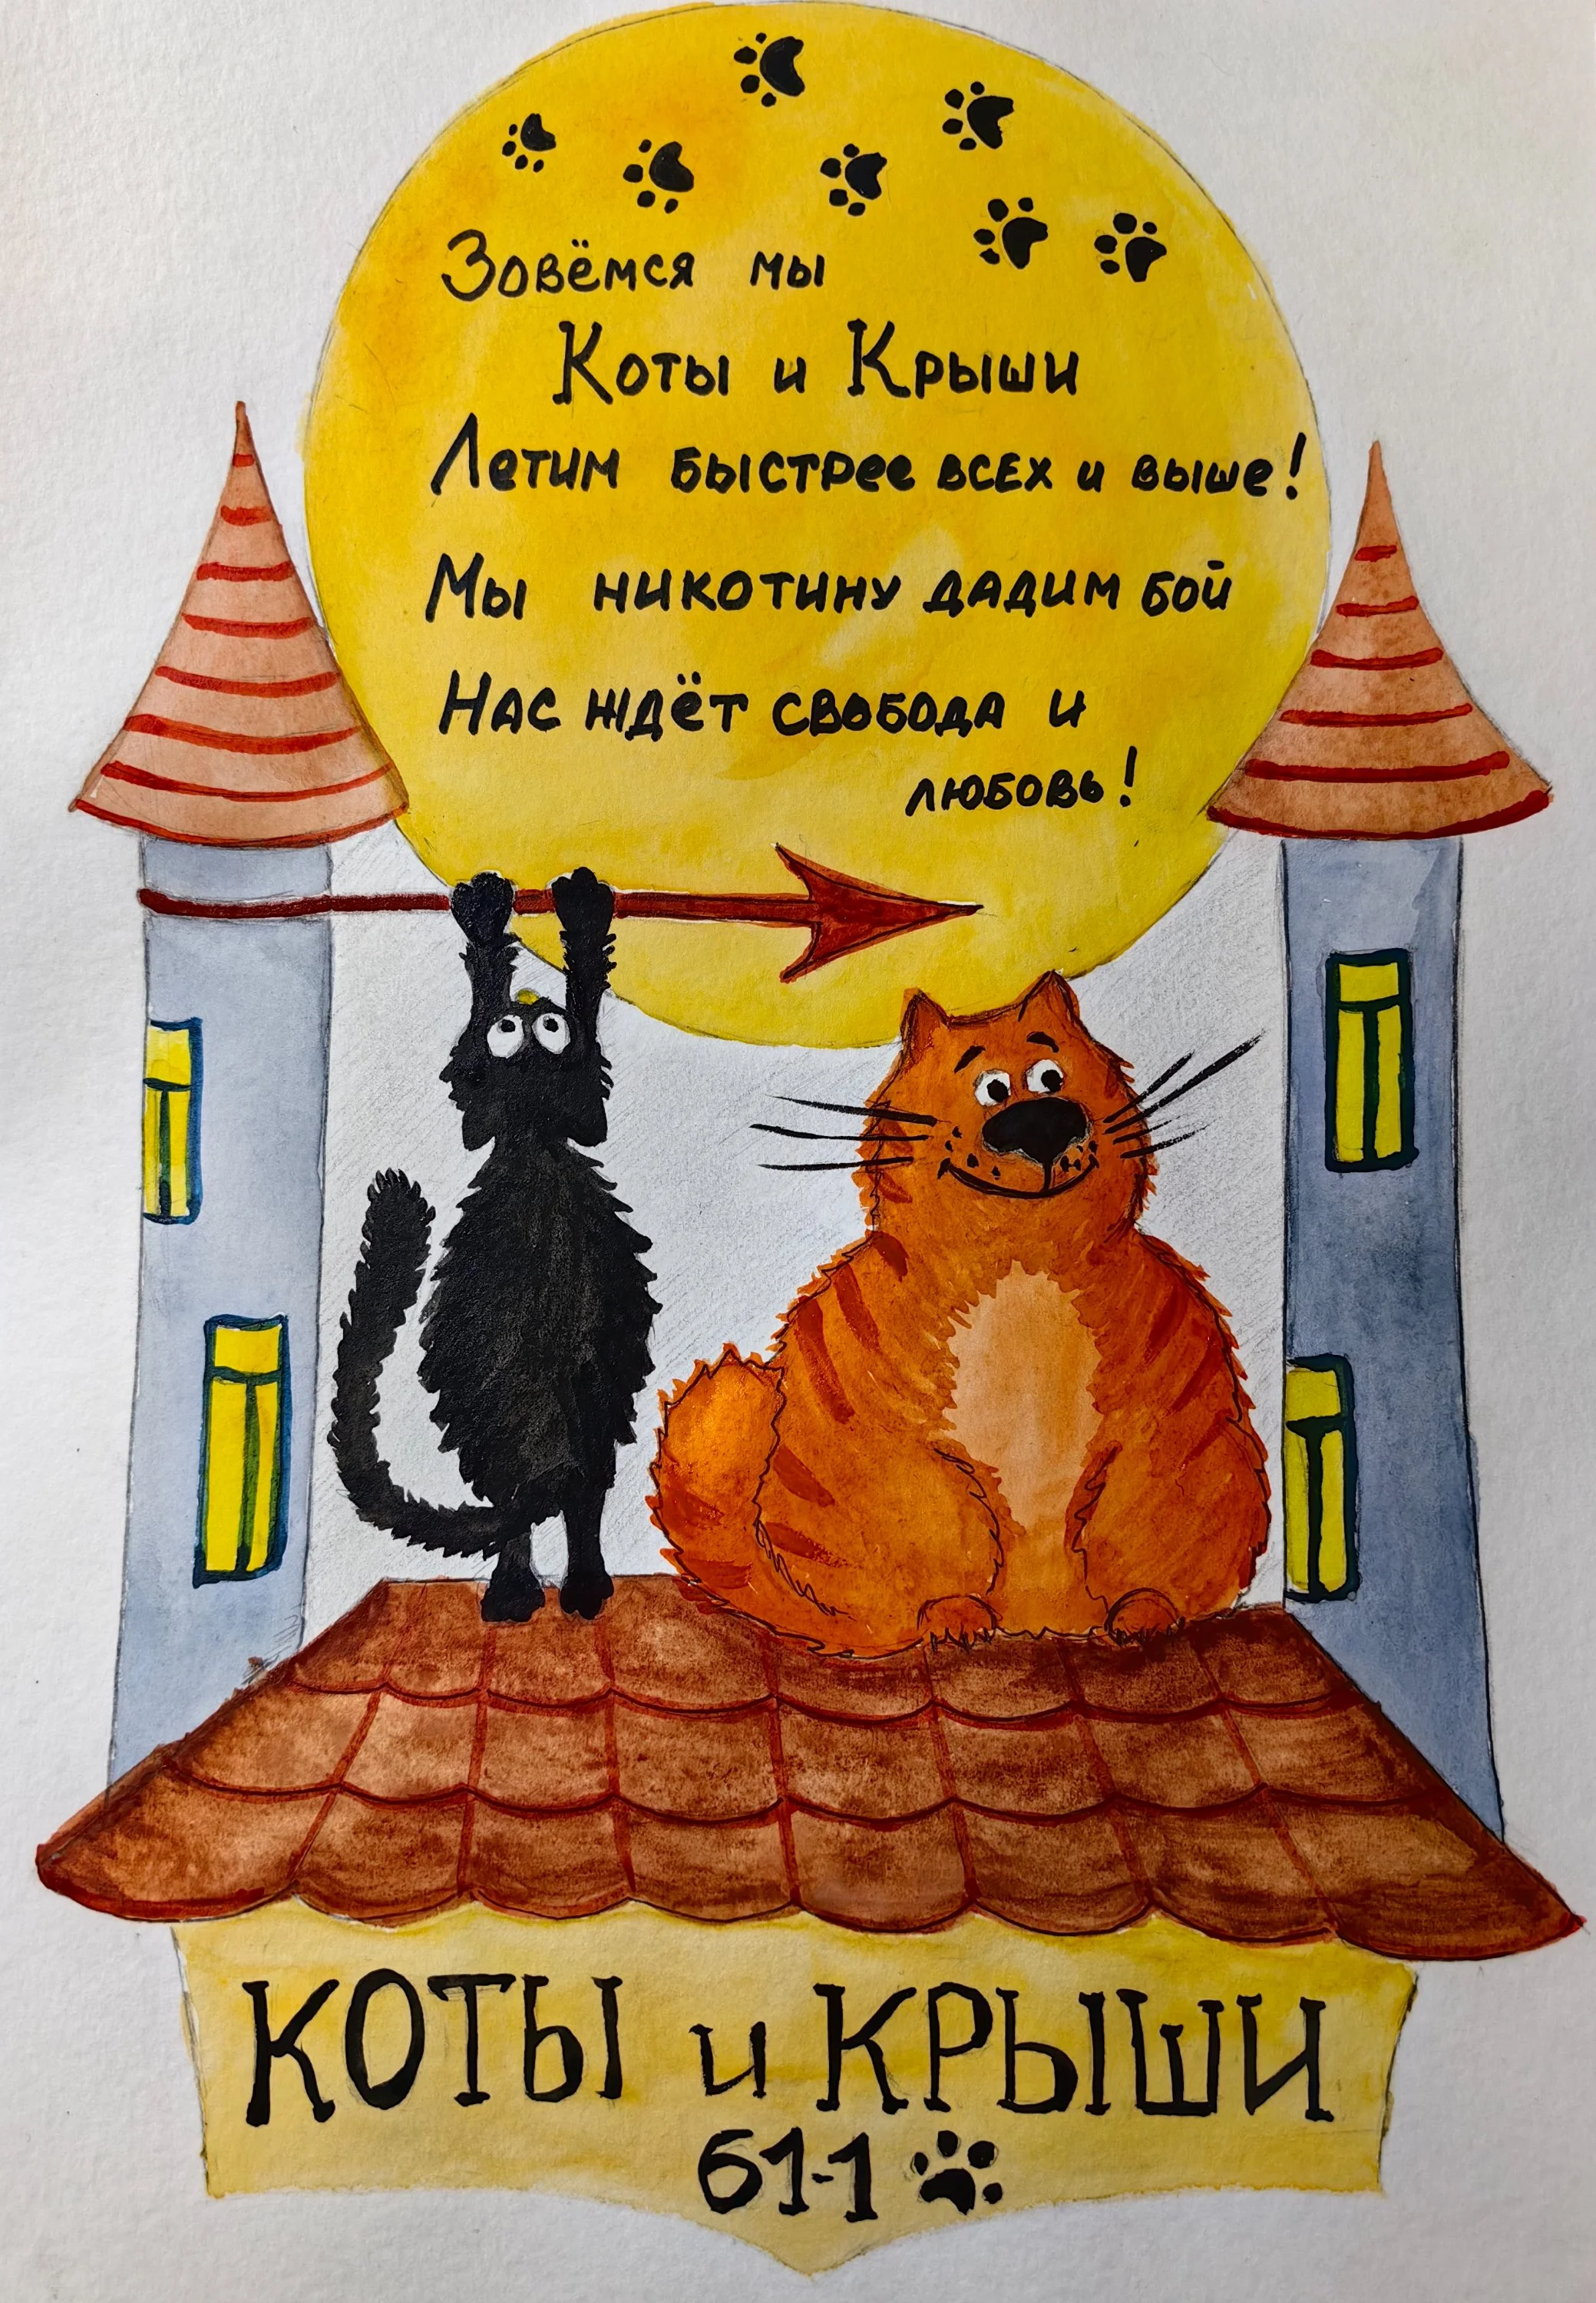 Зовёмся мы
Коты и Крыши
Летим быстрее всех и выше!
Мы никотину дадим бой
Нас ждёт свобода и
любовь!
КОТЫ и КРЫШИ
61-1